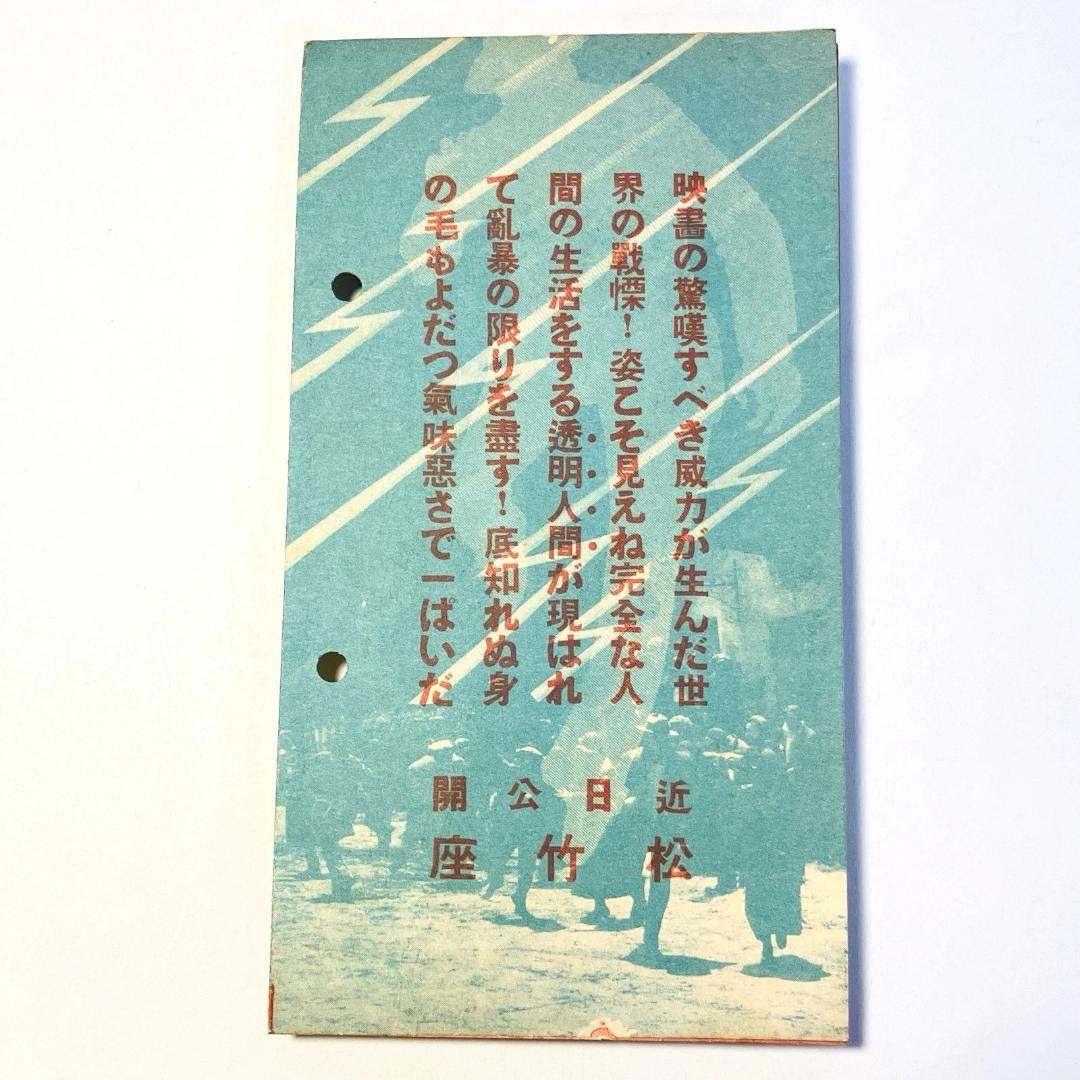 映畫の驚嘆すべき威力が生んだ世
界の戰慄！姿こそ見えね完全な人
間の生活をする透明人間が現はれ
て亂暴の限りを盡す！底知れぬ身
の毛もよだつ氣味惡さで一ぱいだ
近日公開
松竹座